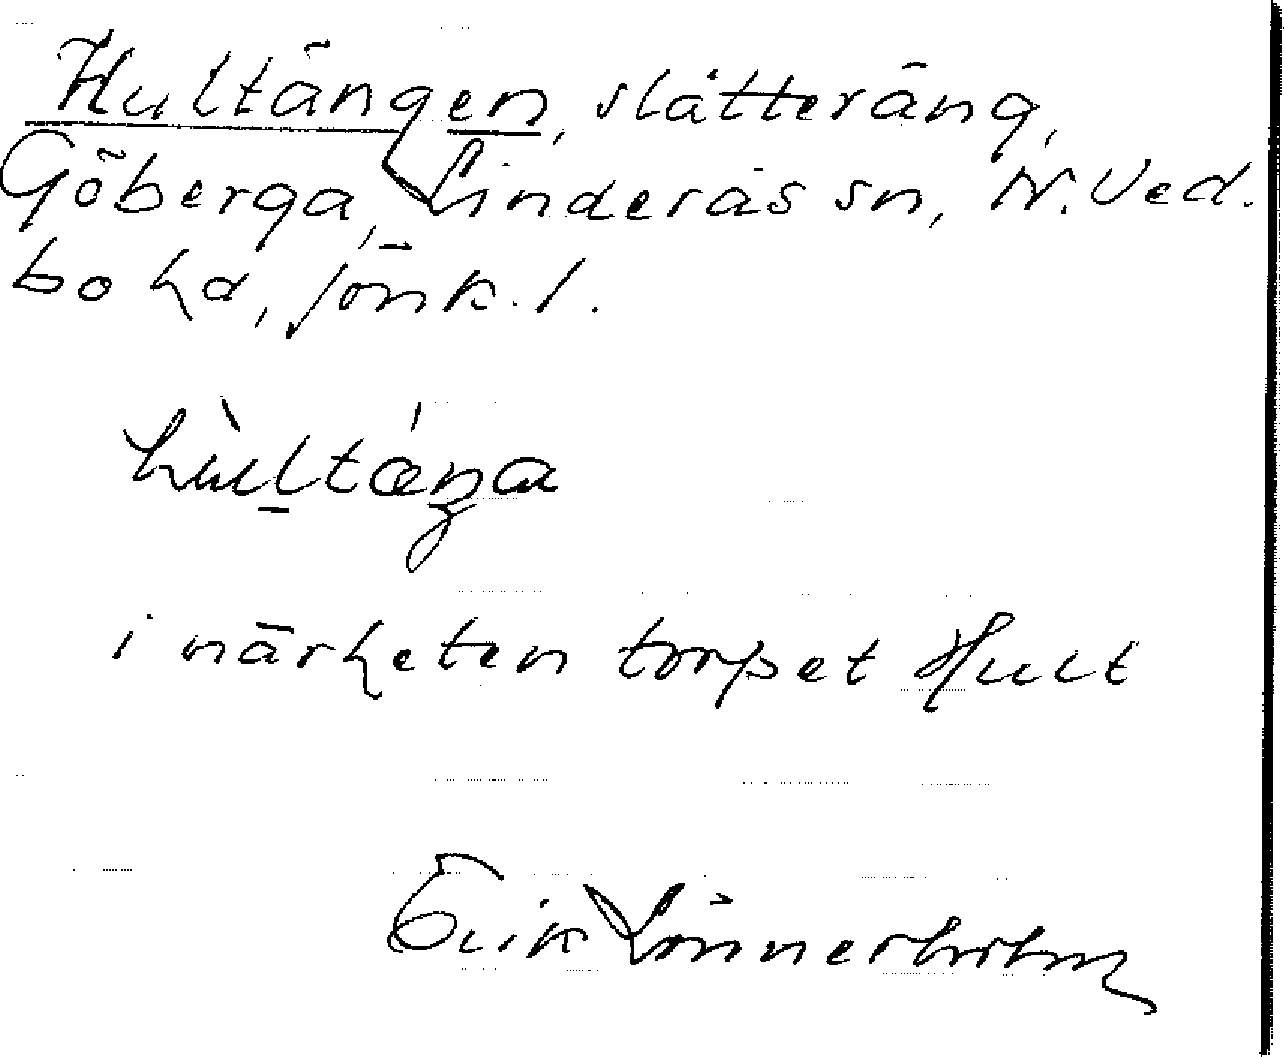 Hultängen, slåtteräng,
Göberga, Linderås sn, N. Ved.
bo hd, Jönk. l.
hùltǽŋa
i närheten torpet Hult
Erik Lönnerholm